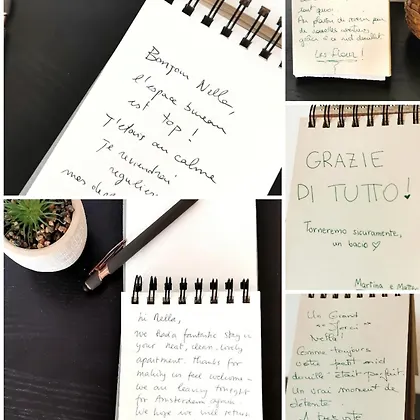 Bonjour Nella,
l'espace bureau
est top !
J'étais au calme
Je reviendrai
tout quoi.
Au plaisir de revenir pour
de nouvelles
grâce à ce nid douillet
GRAZIE
DI TUTTO!
Torneremo sicuramente,
un bacio ♡
Martina e
hi Nella,
we had a fantastic stay in
your neat, clean, lovely
apartment. thanks for
making us feel welcome -
we are leaving tonight
for Amsterdam again
we hope we will return
Un Grand
Merci
Nella!
Comme toujours
votre petit nid
douillet était parfait.
Un vrai moment de
détente.